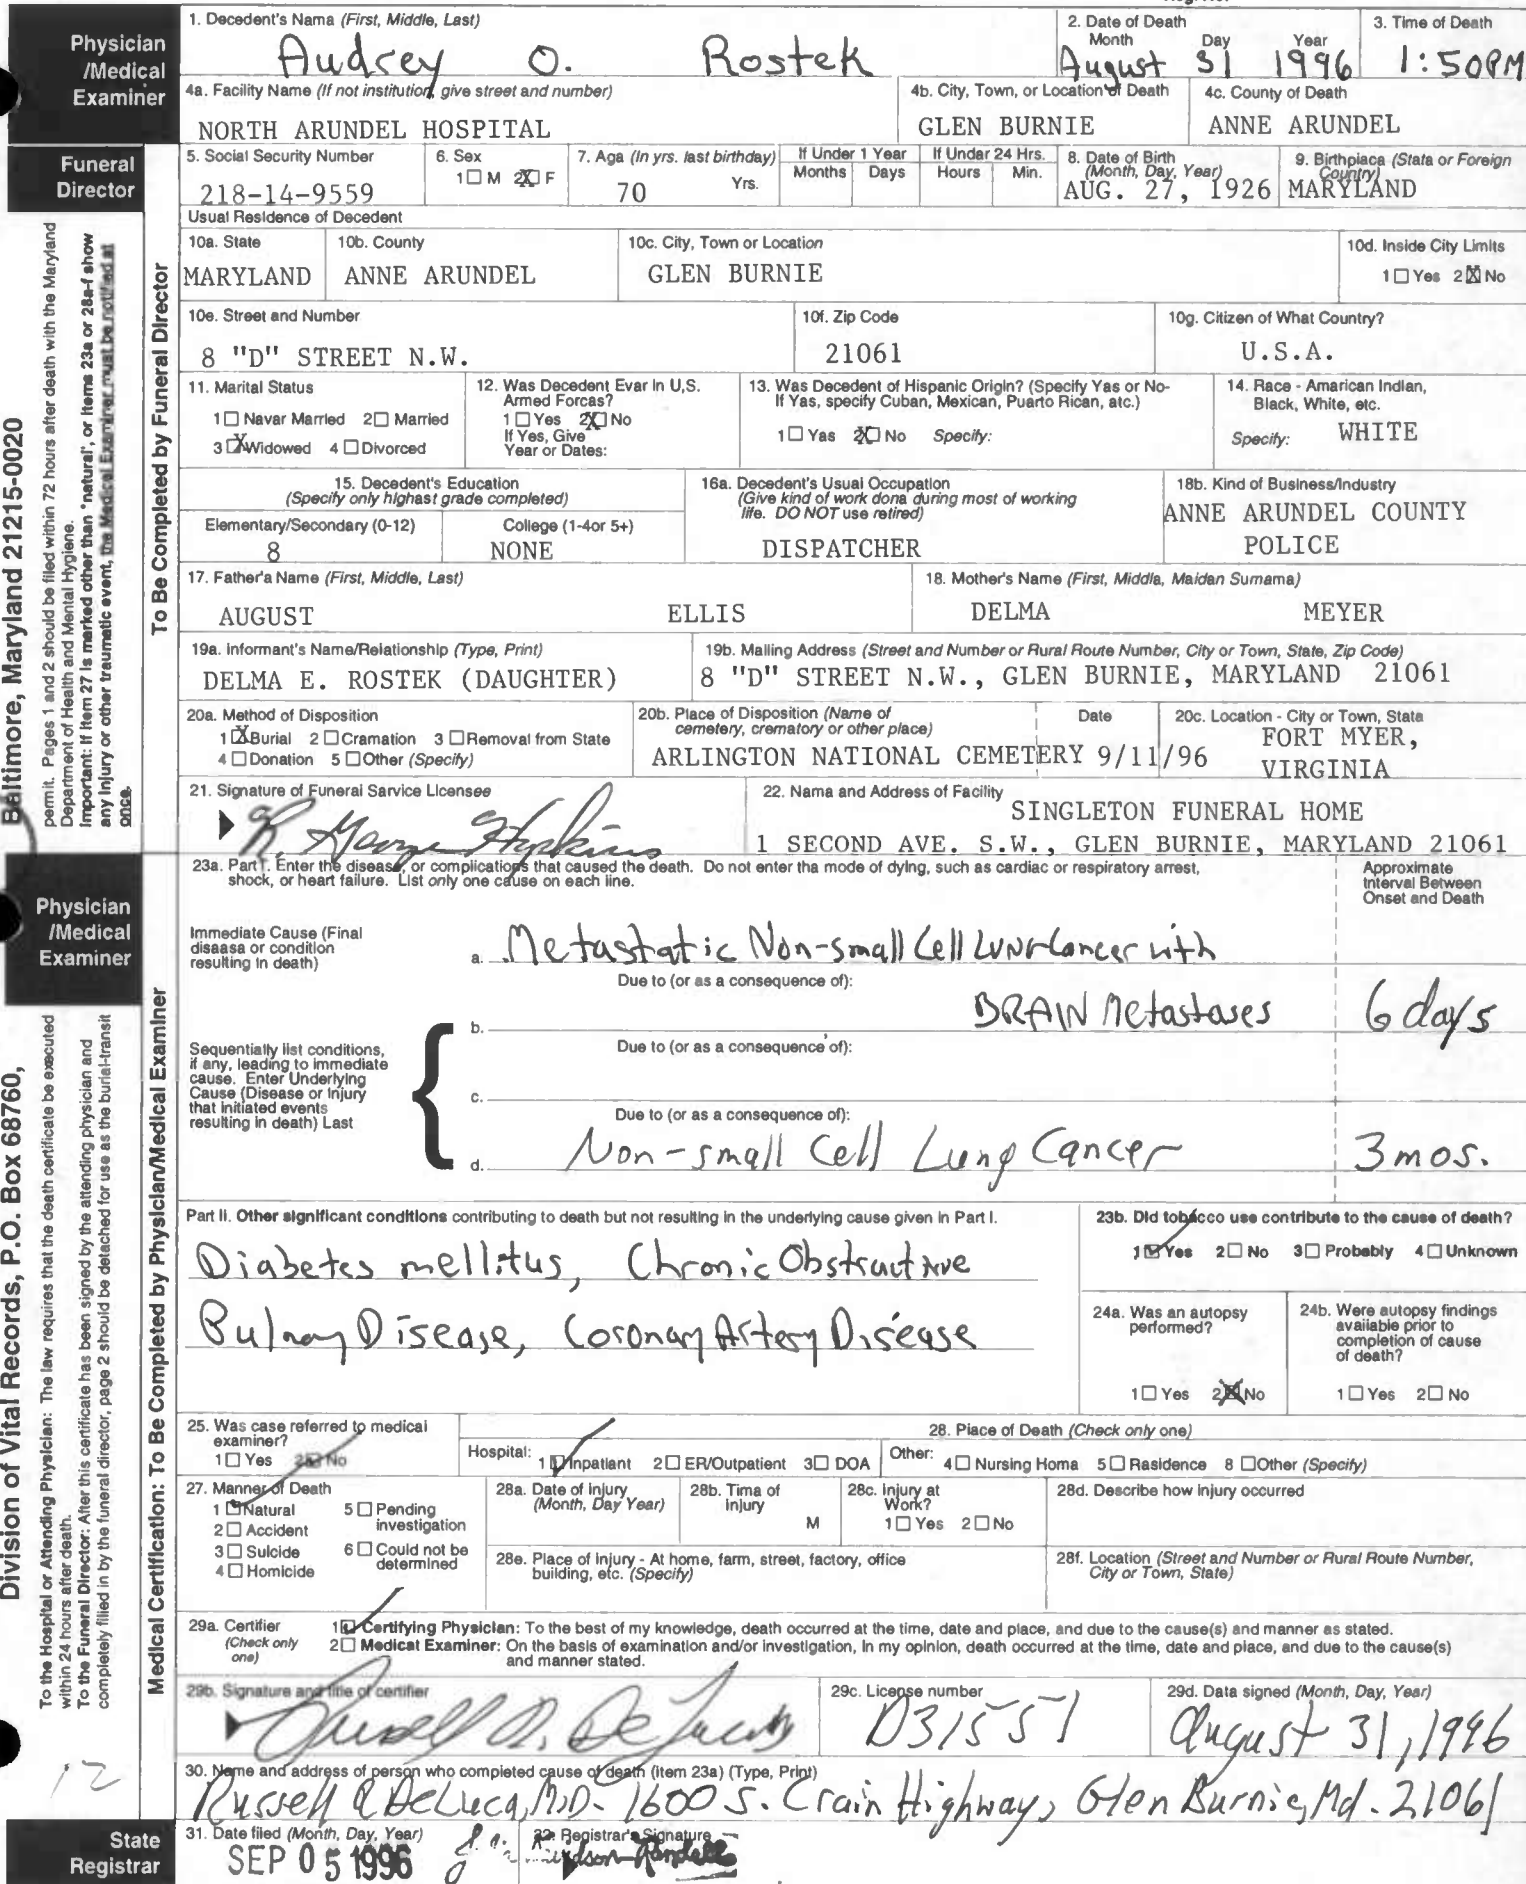 Physician
/Medical
Examiner
1. Decedent's Name (First, Middle, Last)
Audrey O. Rostek
2. Date of Death
Month Day Year
August 31 1996
3. Time of Death
1:50PM
4a. Facility Name (If not institution, give street and number)
NORTH ARUNDEL HOSPITAL
4b. City, Town, or Location of Death
GLEN BURNIE
4c. County of Death
ANNE ARUNDEL
Funeral
Director
5. Social Security Number
218-14-9559
6. Sex
1☐ M 2☒ F
7. Aga (In yrs. last birthday)
70 Yrs.
If Under 1 Year
Months Days
If Undar 24 Hrs.
Hours Min.
8. Date of Birth
(Month, Day, Year)
AUG. 27, 1926
9. Birthplaca (Stata or Foreign
Country)
MARYLAND
Usual Residence of Decedent
10a. State
MARYLAND
10b. County
ANNE ARUNDEL
10c. City, Town or Location
GLEN BURNIE
10d. Inside City Limits
1☐ Yes 2☒ No
10e. Street and Number
8 "D" STREET N.W.
10f. Zip Code
21061
10g. Citizen of What Country?
U.S.A.
11. Marital Status
1☐ Navar Married 2☐ Married
3☒ Widowed 4☐ Divorced
12. Was Decedent Evar in U.S.
Armed Forcas?
1☐ Yes 2☒ No
If Yes, Give
Year or Dates:
13. Was Decedent of Hispanic Origin? (Specify Yas or No-
If Yas, specify Cuban, Mexican, Puarto Rican, atc.)
1☐ Yas 2☒ No Specify:
14. Race - Amarican Indlan,
Black, White, etc.
Specify: WHITE
15. Decedent's Education
(Specify only highast grade completed)
Elementary/Secondary (0-12)
8
College (1-4or 5+)
NONE
16a. Decedent's Usual Occupation
(Give kind of work dona during most of working
life. DO NOT use retired)
DISPATCHER
18b. Kind of Business/Industry
ANNE ARUNDEL COUNTY
POLICE
17. Father'a Name (First, Middle, Last)
AUGUST ELLIS
18. Mother's Name (First, Middla, Maidan Sumama)
DELMA MEYER
19a. Informant's Name/Relationship (Type, Print)
DELMA E. ROSTEK (DAUGHTER)
19b. Malling Address (Street and Number or Rural Route Number, City or Town, State, Zip Code)
8 "D" STREET N.W., GLEN BURNIE, MARYLAND 21061
20a. Method of Disposition
1☒ Burial 2☐ Cramation 3☐ Removal from State
4☐ Donation 5☐ Other (Specify)
20b. Place of Disposition (Name of
cemetery, crematory or other place)
ARLINGTON NATIONAL CEMETERY
Date
9/11/96
20c. Location - City or Town, Stata
FORT MYER,
VIRGINIA
21. Signature of Funeral Sarvice Licensee
R. George Hopkins
22. Name and Address of Facility
SINGLETON FUNERAL HOME
1 SECOND AVE. S.W., GLEN BURNIE, MARYLAND 21061
To Be Completed by Funeral Director
Baltimore, Maryland 21215-0020
permit. Pages 1 and 2 should be filed within 72 hours after death with the Maryland
Department of Health and Mental Hygiene.
Important: If item 27 is marked other than "natural", or items 23a or 28a-f show
any injury or other traumatic event, the Medical Examiner must be notified at
once.
Physician
/Medical
Examiner
23a. Part I. Enter the disease, or complications that caused the death. Do not enter tha mode of dying, such as cardiac or respiratory arrest,
shock, or heart failure. List only one cause on each line.
Approximate
Interval Between
Onset and Death
Immediate Cause (Final
disaasa or condition
resulting in death)
a. Metastatic Non-small Cell Lung Cancer with
Due to (or as a consequence of):
b. BRAIN Metastases 6 days
Due to (or as a consequence of):
Sequentially list conditions,
if any, leading to immediate
cause. Enter Underlying
Cause (Disease or Injury
that initiated events
resulting in death) Last
c.
Due to (or as a consequence of):
d. Non-small Cell Lung Cancer 3 mos.
Part II. Other significant conditions contributing to death but not resulting in the underlying cause given in Part I.
Diabetes mellitus, Chronic Obstructive
Pulmary Disease, Coronary Artery Disease
23b. Did tobacco use contribute to the cause of death?
1☑ Yes 2☐ No 3☐ Probably 4☐ Unknown
24a. Was an autopsy
performed?
1☐ Yes 2☒ No
24b. Were autopsy findings
available prior to
completion of cause
of death?
1☐ Yes 2☐ No
25. Was case referred to medical
examiner?
1☐ Yes 2☒ No
28. Place of Death (Check only one)
Hospital: 1☑ Inpatiant 2☐ ER/Outpatient 3☐ DOA Other: 4☐ Nursing Homa 5☐ Rasidence 8 ☐ Other (Specify)
27. Manner of Death
1☑ Natural 5☐ Pending
investigation
2☐ Accident
3☐ Suicide 6☐ Could not be
determined
4☐ Homicide
28a. Date of Injury
(Month, Day Year)
28b. Tima of
Injury
M
28c. Injury at
Work?
1☐ Yes 2☐ No
28d. Describe how injury occurred
28e. Place of Injury - At home, farm, street, factory, office
building, etc. (Specify)
28f. Location (Street and Number or Rural Route Number,
City or Town, State)
29a. Certifier
(Check only
one)
1☑ Certifying Physician: To the best of my knowledge, death occurred at the time, date and place, and due to the cause(s) and manner as stated.
2☐ Medicat Examiner: On the basis of examination and/or investigation, in my opinion, death occurred at the time, date and place, and due to the cause(s)
and manner stated.
29b. Signature and title of certifier
Russell A. DeLuca
29c. License number
D31551
29d. Data signed (Month, Day, Year)
August 31, 1996
30. Name and address of person who completed cause of death (item 23a) (Type, Print)
Russell A DeLuca, M.D. - 1600 S. Crain Highway, Glen Burnie, Md. 21061
Medical Certification: To Be Completed by Physician/Medical Examiner
Division of Vital Records, P.O. Box 68760,
To the Hospital or Attending Physician: The law requires that the death certificate be executed
within 24 hours after death.
To the Funeral Director: After this certificate has been signed by the attending physician and
completely filled in by the funeral director, page 2 should be detached for use as the burial-transit
12
State
Registrar
31. Date filed (Month, Day, Year)
SEP 05 1996
32. Registrar's Signature